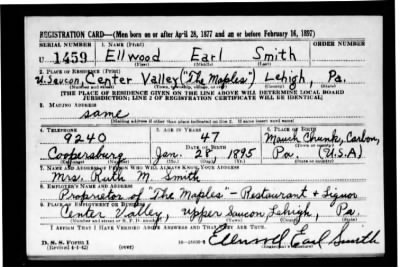 REGISTRATION CARD—(Men born on or after April 28, 1877 and on or before February 16, 1897)
SERIAL NUMBER 1. NAME (Print) ORDER NUMBER
U 1459 Ellwood Earl Smith
(First) (Middle) (Last)
2. PLACE OF RESIDENCE (Print)
U. Saucon, Center Valley ("The Maples") Lehigh, Pa.
(Number and street) (Town, township, village, or city) (County) (State)
[THE PLACE OF RESIDENCE GIVEN ON THE LINE ABOVE WILL DETERMINE LOCAL BOARD
JURISDICTION; LINE 2 OF REGISTRATION CERTIFICATE WILL BE IDENTICAL]
3. MAILING ADDRESS
same
[Mailing address if other than place indicated on line 2. If same insert word same]
4. TELEPHONE 5. AGE IN YEARS 6. PLACE OF BIRTH
9240 47 Mauch Chunk, Carbon,
DATE OF BIRTH (Town or county)
Coopersburg Jan. 28 1895 Pa. (U.S.A)
(Exchange) (Number) (Mo.) (Day) (Yr.) (State or country)
7. NAME AND ADDRESS OF PERSON WHO WILL ALWAYS KNOW YOUR ADDRESS
Mrs. Ruth M. Smith
8. EMPLOYER'S NAME AND ADDRESS
Proprietor of "The Maples" - Restaurant + Liquor
9. PLACE OF EMPLOYMENT OR BUSINESS
Center Valley, upper Saucon, Lehigh, Pa.
(Number and street or R. F. D. number) (Town) (County) (State)
I AFFIRM THAT I HAVE VERIFIED ABOVE ANSWERS AND THAT THEY ARE TRUE.
D. S. S. Form 1
(Revised 4-1-42) (over) Ellwood Earl Smith
(Registrant's signature)